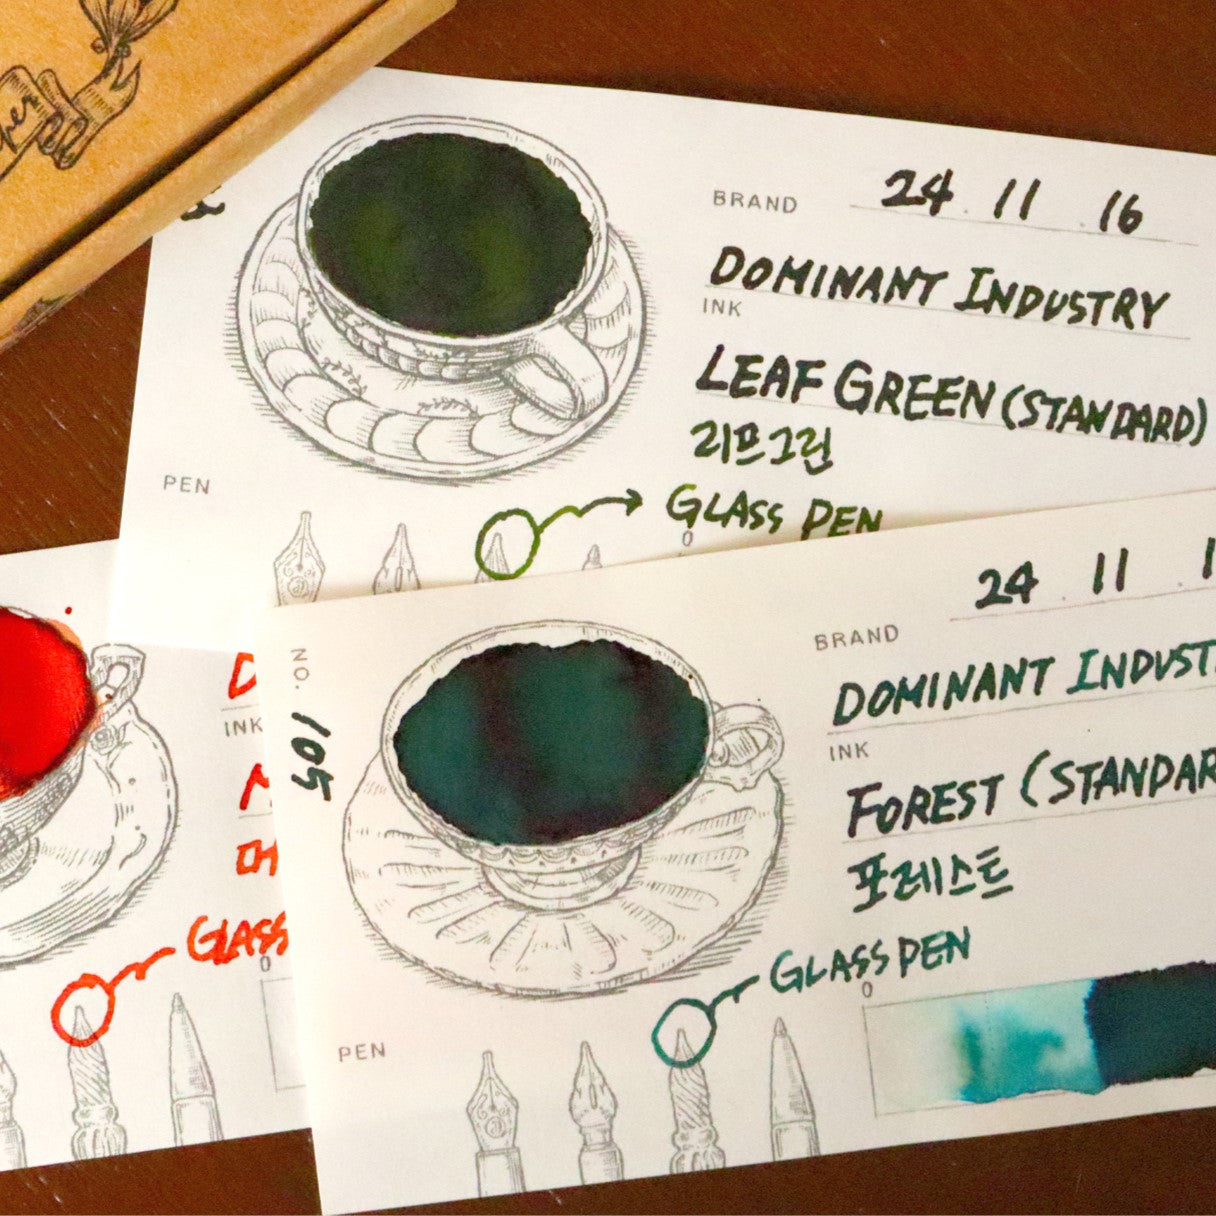 BRAND
24 . 11 . 16
DOMINANT INDUSTRY
INK
LEAF GREEN (STANDARD)
리프그린
PEN
GLASS PEN
0
NO. 105
24 . 11 . 1
BRAND
DOMINANT INDUST
INK
FOREST (STANDAR
포레스트
GLASS PEN
0
PEN
D
INK
머
GLASS
0